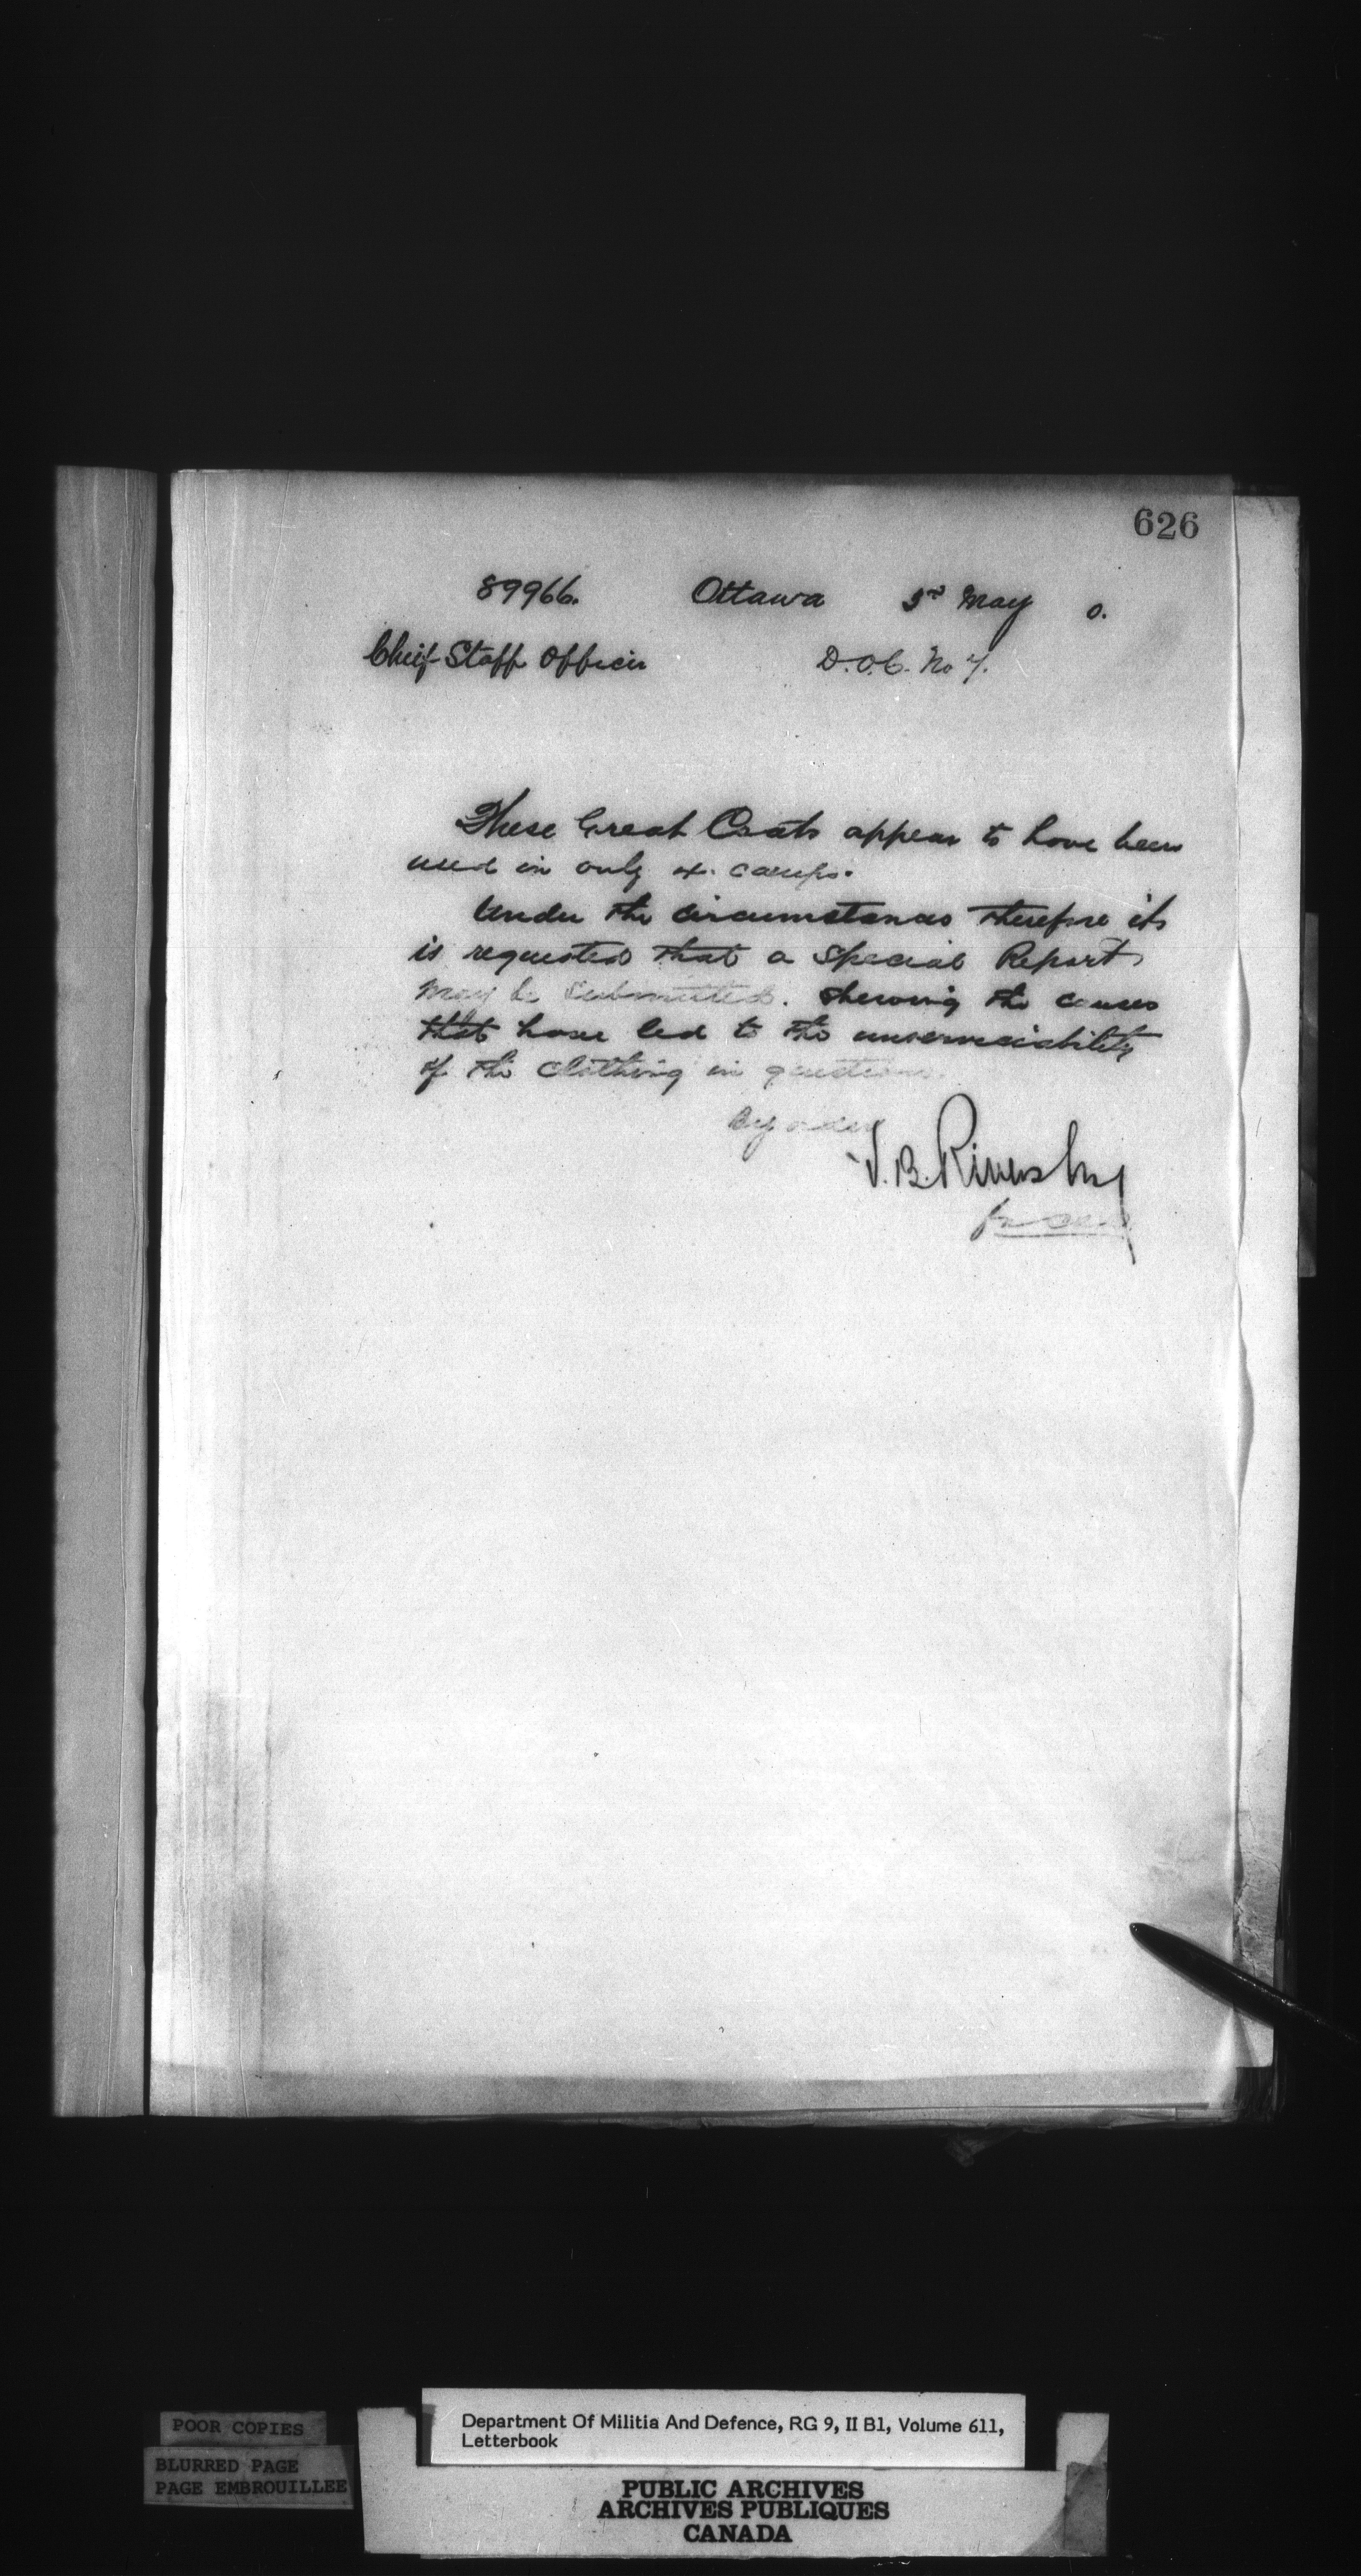 626
89966. Ottawa 3rd May 0.
Chief Staff Officer D.O.C. No 7.
These Great Coats appear to have been
used in only 4. camps.
Under the circumstances therefore it
is requested that a Special Report
may be submitted. shewing the causes
that have led to the unserviceability
of the clothing in question.
By order
V.B. Rivers
for
Department Of Militia And Defence, RG 9, II B1, Volume 611,
Letterbook
POOR COPIES
BLURRED PAGE
PAGE EMBROUILLEE
PUBLIC ARCHIVES
ARCHIVES PUBLIQUES
CANADA